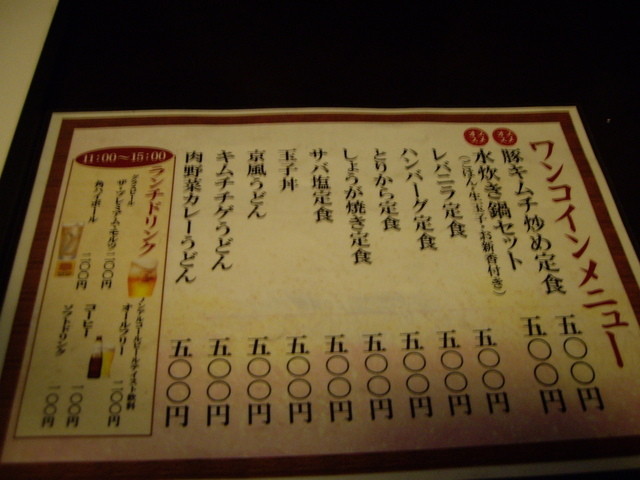 ワンコインメニュー
豚キムチ炒め定食 五〇〇円
水炊き鍋セット 五〇〇円
（ごはん・生玉子・お新香付き）
レバニラ定食 五〇〇円
ハンバーグ定食 五〇〇円
とりから定食 五〇〇円
しょうが焼き定食 五〇〇円
サバ塩定食 五〇〇円
玉子丼 五〇〇円
京風うどん 五〇〇円
キムチチゲうどん 五〇〇円
肉野菜カレーうどん 五〇〇円
11:00〜15:00
ランチドリンク
グラスビール
ザ・プレミアム・モルツ 二〇〇円
角ハイボール 二〇〇円
ノンアルコールビールテイスト飲料
オールフリー 二〇〇円
コーヒー 一〇〇円
ソフトドリンク 一〇〇円